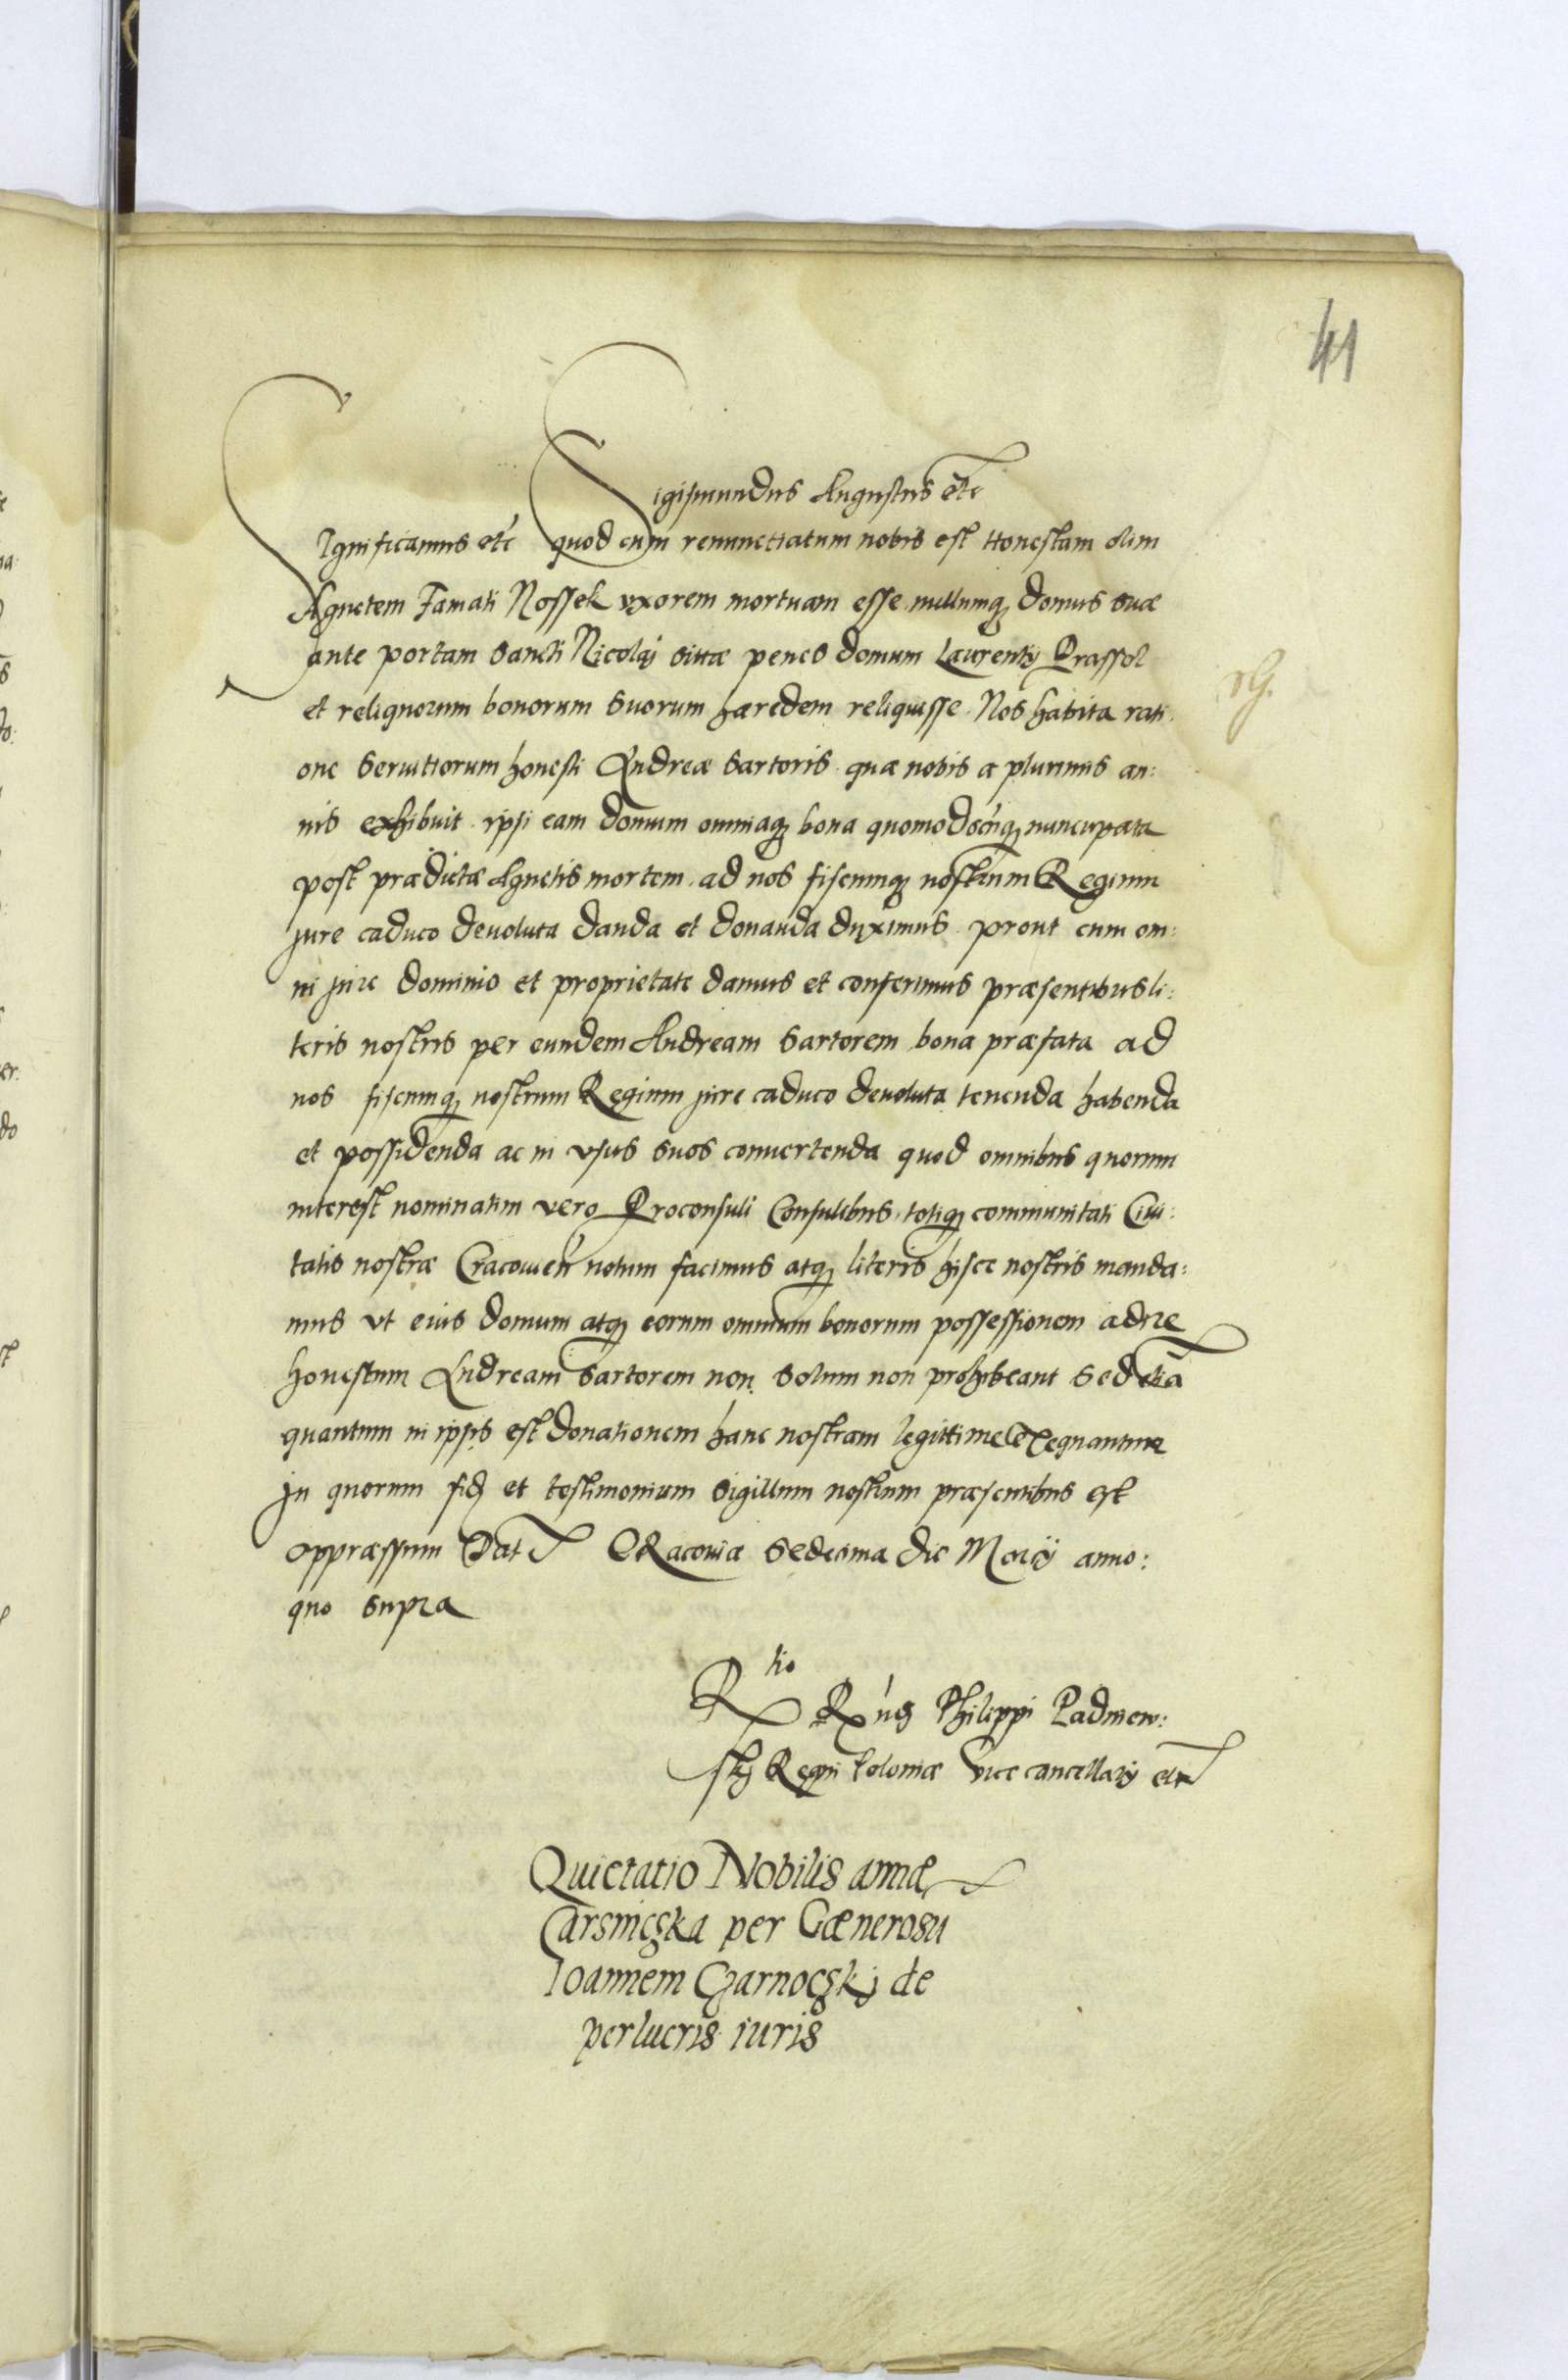 41
Sigismundus Augustus etc
Significamus etc quod cum renunctiatum nobis est Honestam olim
Agnetem Famati Nossek vxorem mortuam esse nullumq; domus suæ
ante portam Sancti Nicolaj sittæ penes domum Laurentij Prassol
et reliquorum bonorum suorum hæredem reliquisse. Nos habita rati
one seruitiorum honesti Andreæ Sartoris quæ nobis a plurimis an:
nis exhibuit ipsi eam domum omniaq; bona quomodocunq; nuncupata
post prædictæ Agnetis mortem ad nos fiscumq; nostrum Regium
jure caduco deuoluta danda et donanda duximus prout cum om:
ni jure dominio et proprietate damus et conferimus præsentibus li:
teris nostris per eundem Andream Sartorem bona præfata ad
nos fiscumq; nostrum Regium jure caduco deuoluta tenenda habenda
et possidenda ac in vsus suos conuertenda quod omnibus quorum
interest nominatim vero Proconsuli Consulibus totiq; communitati Ciui:
tatis nostræ Cracouien notum facimus atq; literis hisce nostris manda:
mus vt eius domum atq; eorum omnium bonorum possessionem adire
honestum Andream Sartorem non solum non prohibeant sed etiã
quantum in ipsis est donationem hanc nostram legittime exequantur
In quorum fidē et testimonium sigillum nostrum præsentibus est
oppræssum Dat CRacouiæ Sedecima die Marcij anno:
quo supra
Rtio R̃ndi Philippi Padniew:
skj Regni Poloniæ Vicecancellarij etc
Quietatio Nobilis annæ
Carsniczka per Gænerosũ
Ioannem Czarnoczkij de
perlucris iuris